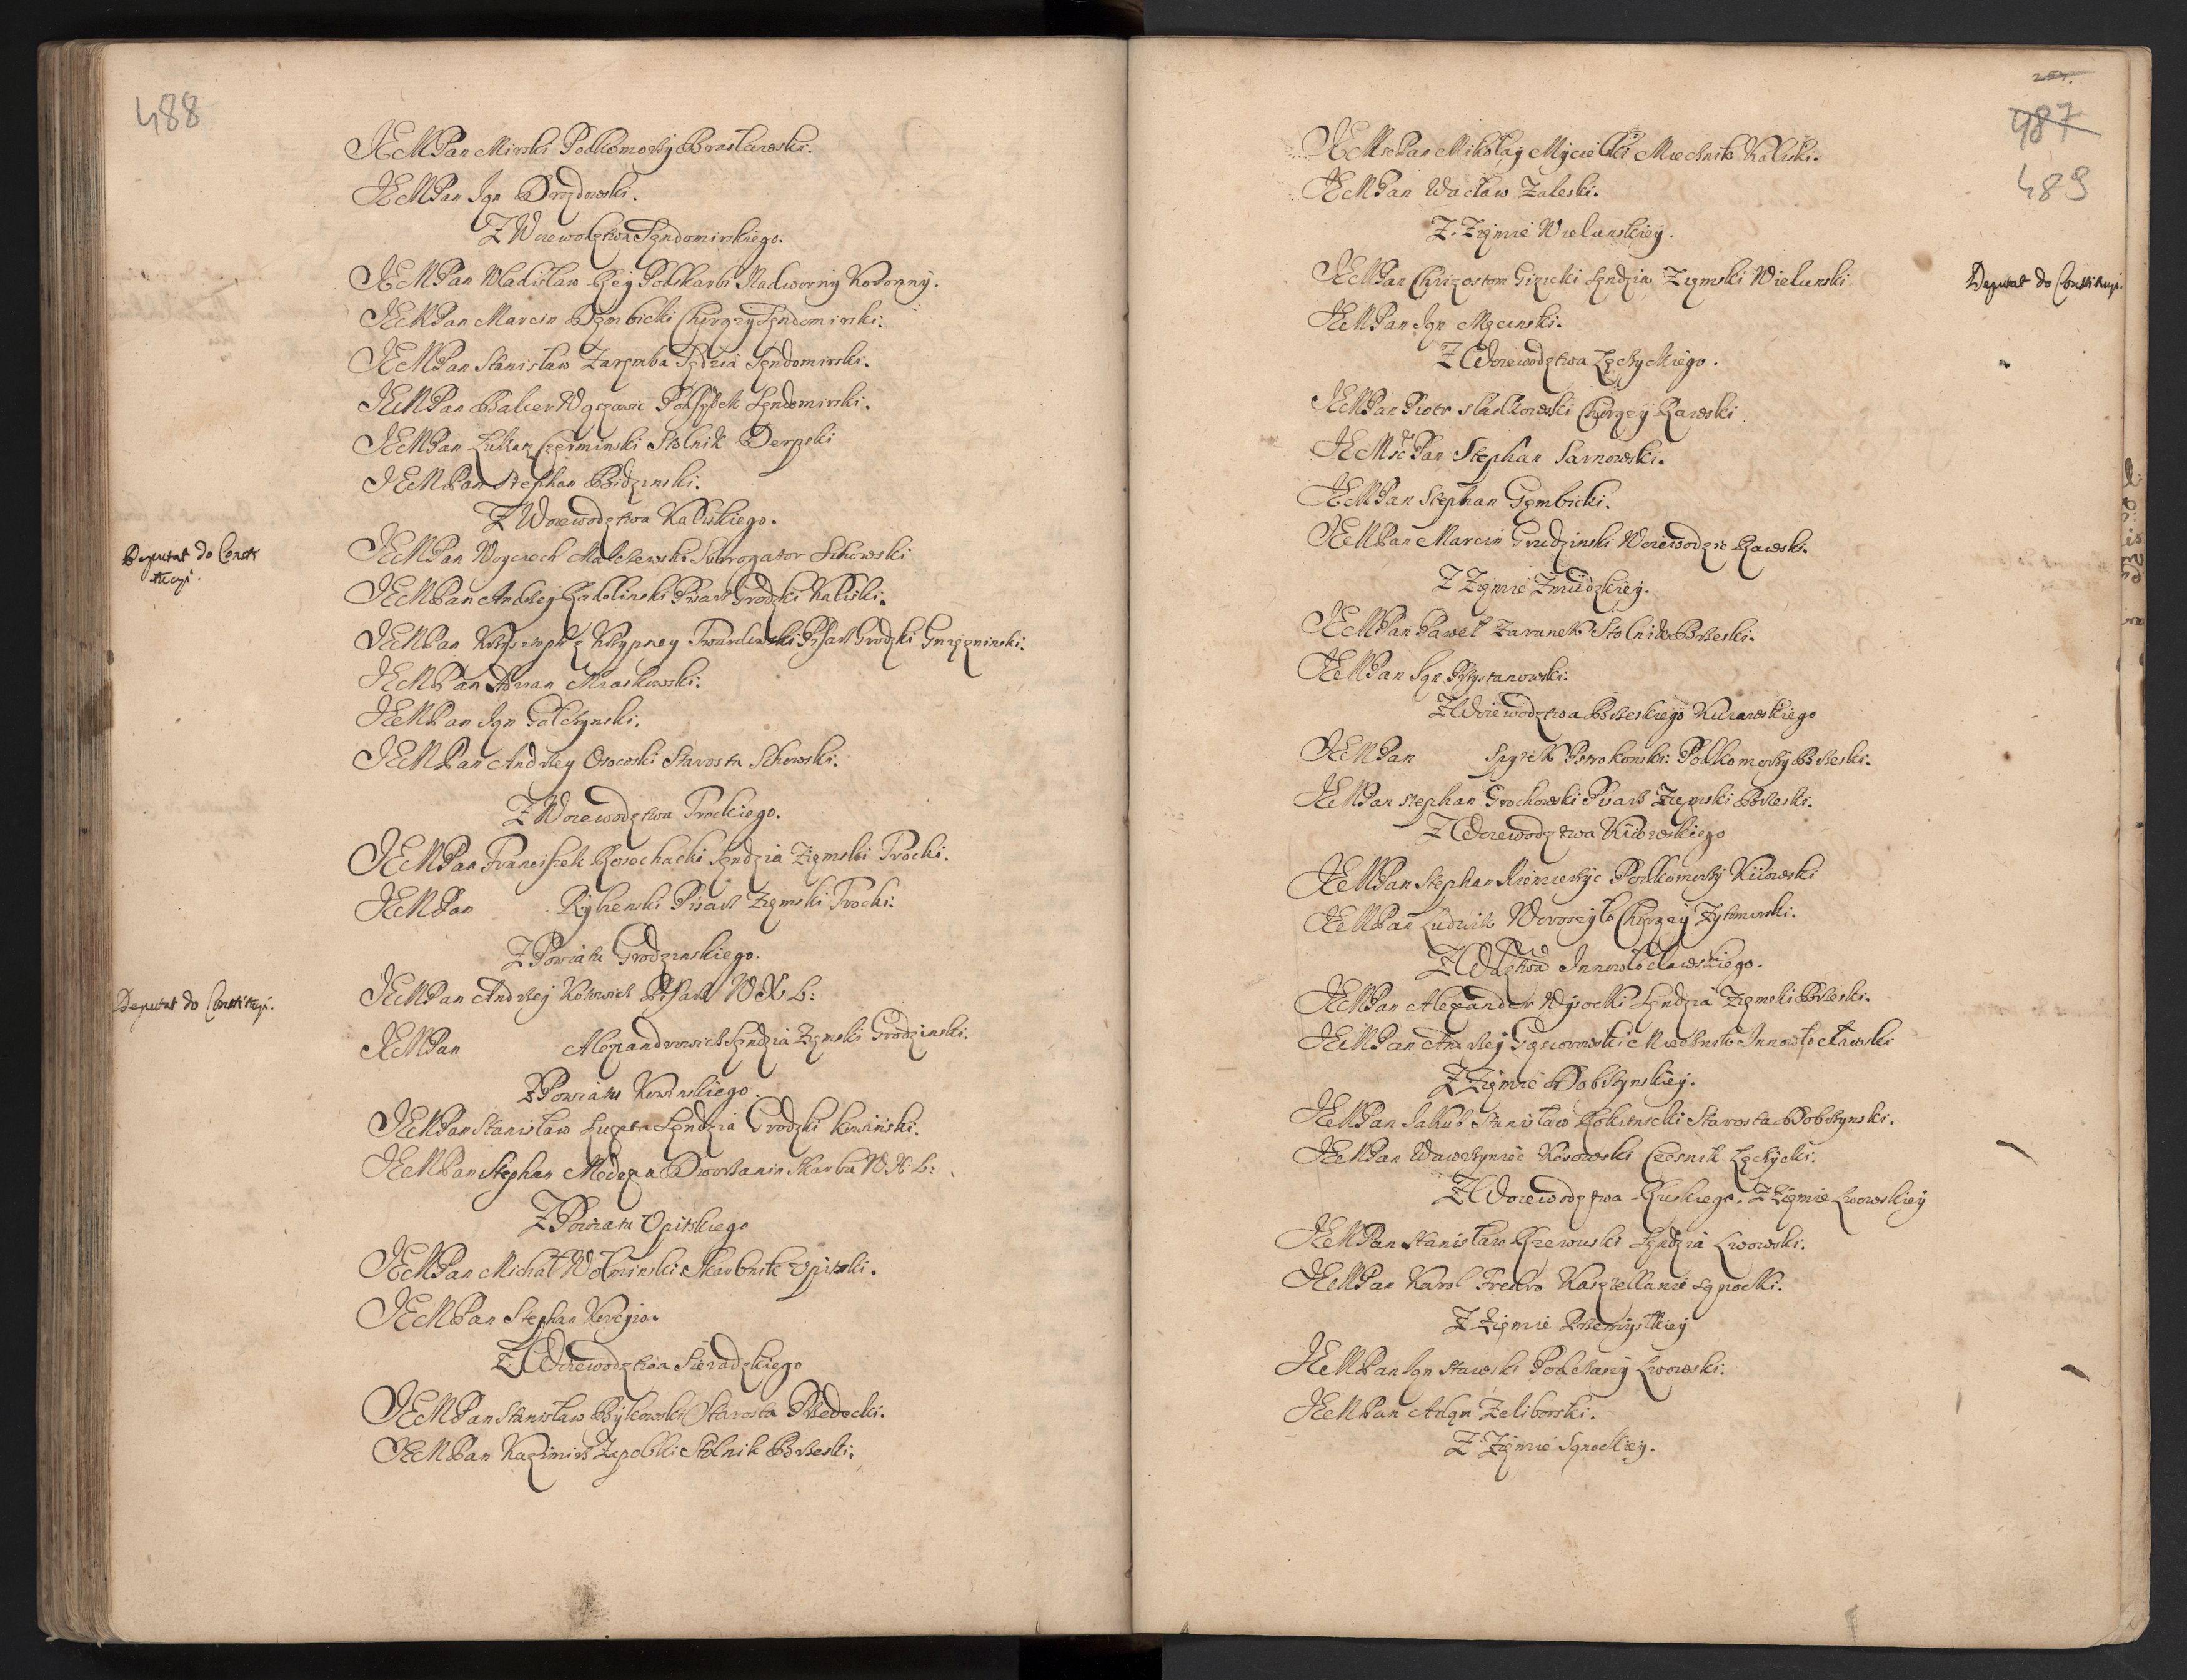 488
JEMPan Mirski Podkomorzy Brasławski.
JEMPan Jan Drozdowski.
Z Woiewodztwa Sendomirskiego.
JEMPan Wladisław Rey Podskarbi Nadworny Koronny.
JEMPan Marcin Dembicki Chorązy Sendomirski.
JEMPan Stanisław Zaremba Sędzia Sendomirski.
JEMPan Balcer Wąsowic Podsędek Sendomirski.
JEMPan Łukasz Czerminski Stolnik Derpski
JEMPan Stephan Bidzinski.
Z Woiewodztwa Kaliskiego.
Deputat do Consti
tucyi.
JEMPan Woyciech Malczewski Surrogator Schowski
JEMPan Andrzej Radolinski Pisarz Grodzki Kaliski.
JEMPan Krzysztoph z Krzypney Twardowski Pisarz Grodzki Gniezninski.
JEMPan Adrian Miaskowski.
JEMPan Jan Gałczynski.
JEMPan Andrzey Osowski Starosta Schowski.
Z Woiewodztwa Trockiego.
JEMPan Franciszek Rosochacki Sendzia Ziemski Trocki.
JEMPan Rylzenski Pisarz Ziemski Trocki.
Z Powiatu Grodzinskiego.
Deputat do Constitucyi.
JEMPan Andrzey Kotowich Pisarz W X L:
JEMPan Alexandrowich Sendzia Ziemski Grodzinski.
Z Powiatu Kowinskiego.
JEMPan Stanisław Sendzia Grodzki kowinski.
JEMPan Stephan Medexa Dworzanin Skarbu W X L:
Z Powiatu Vpitskiego
JEMPan Michał Wolminski Skarbnik Vpitski.
JEMPan Stephan
Z Woiewodztwa Sieradzkiego
JEMPan Stanisław Bykowski Starosta Przedecki.
JEMPan Kazimirz Zapolski Stolnik Brzeski.
987
489
JEMscPan Mikołaj Mycielski Miecznik Kaliski.
JEMPan Wacław Zaleski.
Z Ziemie Wielunskiey.
JEMPan Chrizostom Gizicki Sendzia Ziemski Wielunski
Deputat do Constitucyi.
JEMPan Jan Męcinski.
Z Woiewodztwa Łęczyckiego.
JEMPan Piotr Sładkowski Chorązy Rawski
JEMsc Pan Stephan Sarnowski.
JEMPan Stephan Gembicki.
JEMPan Marcin Grudzinski Woiewodzic Rawski.
Z Ziemie Zmudzkiey.
JEMPan Paweł Zaranek Stolnik Brzeski.
JEMPan Jan Przystanowski.
Z Woiewodztwa Brzeskiego Kuiawskiego
JEMPan Spytek Pstrokonski Podkomorzy Brzeski.
JEMPan Stephan Grochowski Pisarz Ziemski Brzeski.
Z Woiewodztwa Kiiowskiego
JEMPan Stephan Niemierzyc Podkomorzy Kiiowski
JEMPan Ludwik Woroszyło Chorązy Zytomirski.
Z Wdztwa Innowłocławskiego.
JEMPan Alexander Wysocki Sendzia Ziemski Brzeski.
JEMPan Andrzej Gąsiorowski Miecznik Innowłocławski
Z Ziemie Dobrzynskiey.
JEMPan Jakub Stanisław Rokitnicki Starosta Dobrzynski.
JEMPan Wawrzyniec Kossowski Czesnik Łęczycki.
Z Woiewodztwa Ruskiego. Z Ziemie Lwowskiey
JEMPan Stanisław Rzewuski Sendzia Lwowski.
JEMPan Karol Fredro Kasztellanic Sanocki.
Z Ziemie Przemyskiey
JEMPan Jan Stawski Podczaszy Lwowski.
JEMPan Adam Zeliborski.
Z Ziemie Sanockiey.